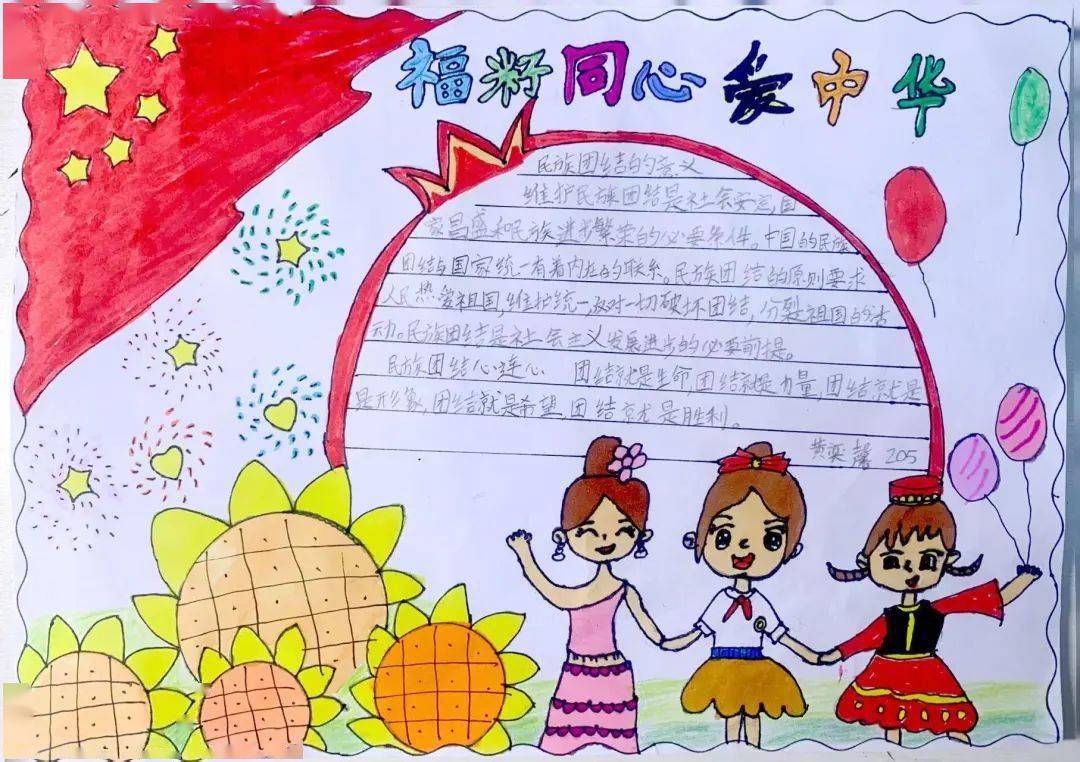 福籽同心爱中华
民族团结的意义
维护民族团结是社会安定,国
家昌盛和民族进步繁荣的必要条件。中国的民族
团结与国家统一有着内在的联系。民族团结的原则要求
人民热爱祖国,维护统一,反对一切破坏团结,分裂祖国的活
动。民族团结是社会主义发展进步的必要前提。
民族团结心连心 团结就是生命,团结就是力量,团结就是
是形象,团结就是希望,团结就是胜利。
黄奕馨 205